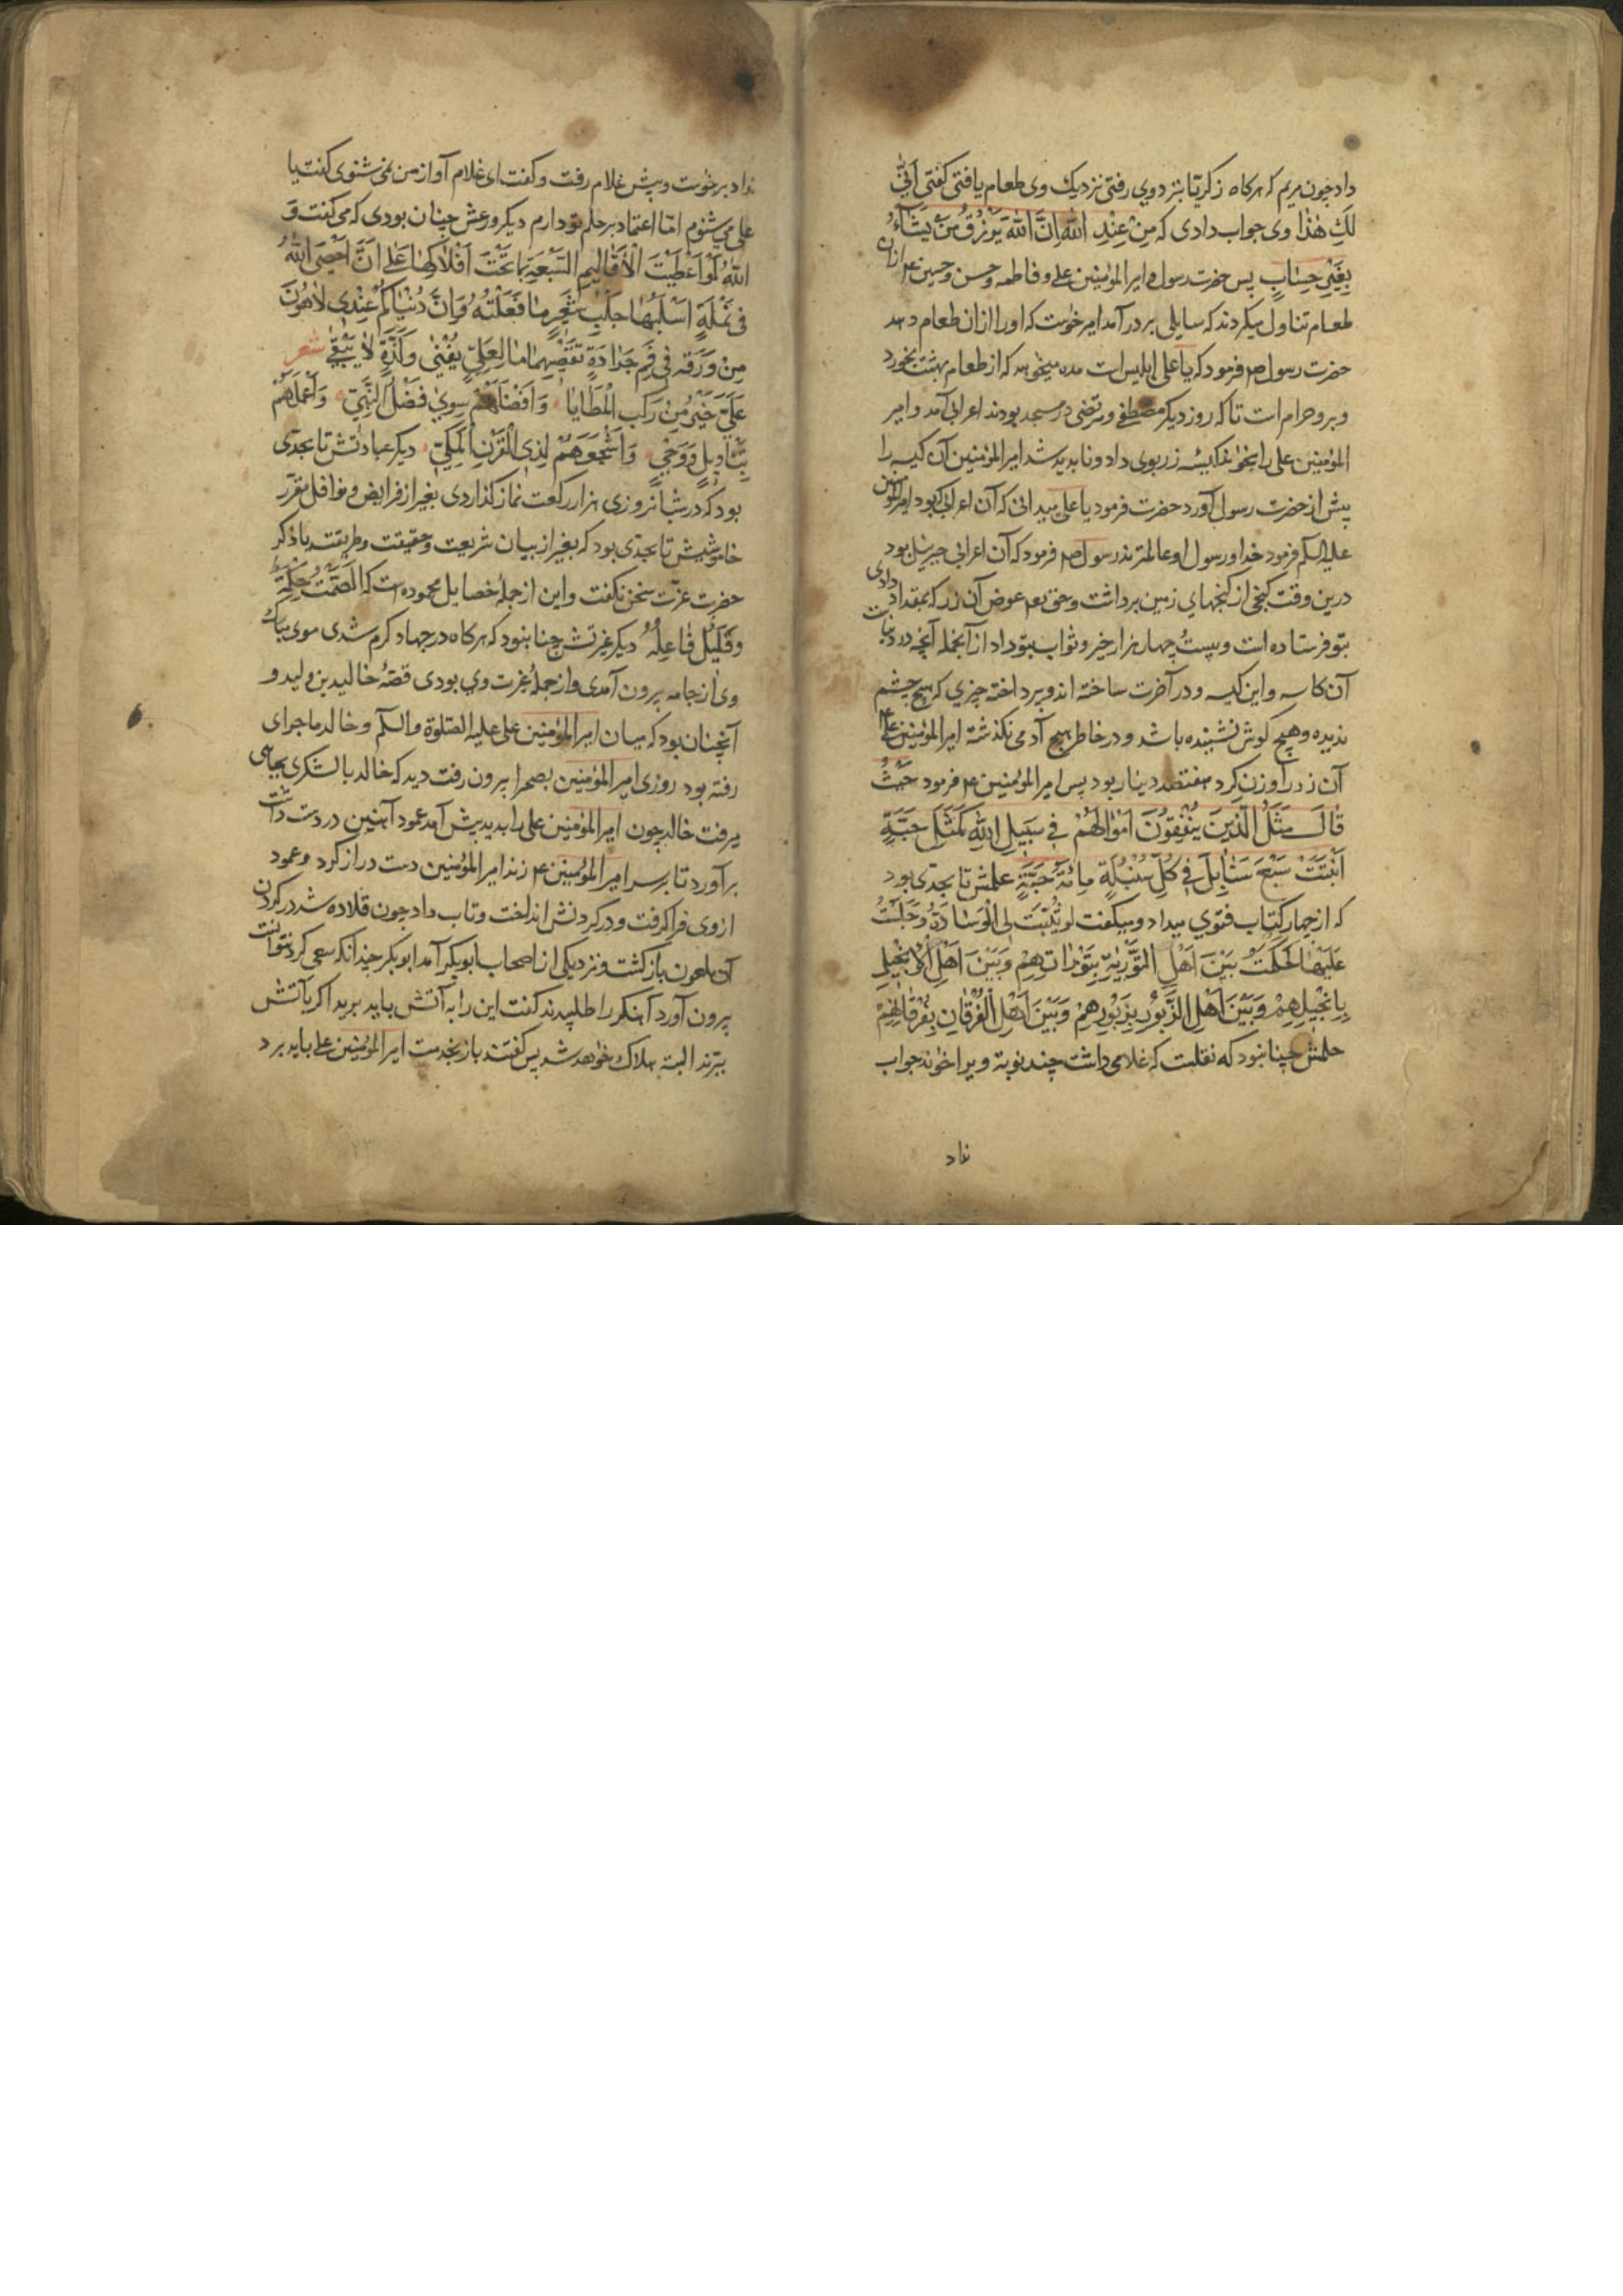 داد چون مریم که هرکاه زکریّا بنزدوي رفتی نزدیک وی طعام یافتی کفتی اَنّٰی
لَكِ هٰذٰا وی جواب دادی که مِنْ عِنْدِ اللّٰهِ اِنَّ اللّٰهَ یَرْزُقُ مَنْ یَشٰآءُ
بِغَیْرِ حِسٰابٍ پس حضرت رسول و امیرالمؤمنین علی و فاطمه و حسن و حسین ع م ازان
طعام تناول میکردند که سایلی بر در آمد امیر خواست که او را ازان طعام دهد
حضرت رسول ص فرمود که یا علی ابلیس است مده میخواهد که از طعام بهشت بخورد
و برو حرام است تا که روز دیکر مصطفی و مرتضی در مسجد بودند اعرابی آمد و امیر
المؤمنین علی را بخواند کیسه زر بوی داد و ناپدید شد امیرالمؤمنین آن کیسه را
پیش از حضرت رسول آورد حضرت فرمود یا علی میدانی که آن اعرابی که بود امیرالمؤمنین
علیه السلم فرمود خدا و رسول او عالمترند رسول ص فرمود که آن اعرابی جبرئیل بود
درین وقت کنجی از کنجهاي زمین برداشت و حق تع عوض آن زر که بمقداد دادی
بتو فرستاده است و بیست چهار هزار خیر و ثواب بتو داد از آنجمله آنچه در دنیاست
آن کاسه و این کیسه و در آخرت ساخته اند و پرداخته چیزي که هیچ چشم
ندیده و هیچ کوش نشنیده باشد و در خاطر هیچ آدمی نکذشته امیرالمؤمنین علی ع م
آن زر را وزن کرد هفتصد دینار بود پس امیرالمؤمنین ع م فرمود حَیْثُ
قٰالَ مَثَلُ الَّذینَ یُنْفِقُونَ اَمْوٰالَهُمْ فی سَبیلِ اللّٰهِ کَمَثَلِ حَبَّةٍ
اَنْبَتَتْ سَبْعَ سَنٰابِلَ فی کُلِّ سُنْبُلَةٍ مِائَةُ حَبَّةٍ علمش تا بحدی بود
که از چهار کتاب فتوي میداد و میکفت لو ثُنِّیَتْ لِیَ الْوَسٰادَةُ وَجَلَسْتُ
عَلَیْهٰا لَحَکَمْتُ بَیْنَ اَهْلِ التَّوْرٰیةِ بِتَوْرٰاتِهِمْ وَبَیْنَ اَهْلِ الْاِنْجیلِ
بِاِنْجیلِهِمْ وَبَیْنَ اَهْلِ الزَّبُورِ بِزَبُورِهِمْ وَبَیْنَ اَهْلِ الْفُرْقٰانِ بِفُرْقٰانِهِمْ
حلمش چنان بود که نقلست که غلامی داشت چند نوبة ویرا خواند جواب
نداد
نداد برخواست و پیش غلام رفت و کفت ای غلام آواز من نمی شنوی کفت یا
علی می شنوم امّا اعتماد بر حلم تو دارم دیکر ورعش چنان بودی که می کفت وَ
اللّٰهِ لَوْ اُعْطِیْتَ الْاَقٰالیمَ السَّبْعَةَ بِمٰا تَحْتَ اَفْلٰاکِهٰا عَلیٰ اَنْ اَعْصِیَ اللّٰهَ
فی نَمْلَةٍ اَسْلُبُهٰا جِلْبَ شَعْیِرٍ مٰا فَعَلْتُهُ وَاِنَّ دُنْیٰاکُمْ عِنْدی لَاَهْوَنُ
مِنْ وَرَقَةٍ فی فَمِ جَرٰادَةٍ تَقْضِمُهٰا مٰا لِعَلیٍّ یَفْنٰی وَلَذَّةٍ لٰا یَبْقٰی شعر
عَلیٌّ خَیْرُ مَنْ رَکِبَ الْمَطٰایٰا وَاَفْضَلُهُمْ سِویٰ فَضْلِ النَّبِیِّ وَاَعْلَمُهُمْ
بِتَأویلٍ وَوَحْیٍ وَاَشْجَعُهُمْ لِذِی الْقَرْنِ الْکَمِیِّ دیکر عبادتش تا بحدّی
بود که در شبانروزی هزار رکعت نماز کذاردی بغیر از فرایض و نوافل مقرّر
خاموشیش تا بحدّی بود که بغیر از بیان شریعت و حقیقت و طریقت یا ذکر
حضرت عزّت سخن نکفت و این از جملهٔ خصایل محموده است که الصَّمْتُ حِکْمَةٌ
وَقَلیلٌ فٰاعِلُهُ دیکر غیرتش چنان بود که هرکاه در جهاد کرم شدی موی مبارک
وی از جامه بیرون آمدی و از جملهٔ غیرت وي بودی قصّهٔ خالید بن ولید و
آنچنان بود که میان امیرالمؤمنین علی علیه الصّلوة والسلم و خالد ماجرای
رفته بود روزی امیرالمؤمنین بصحرا بیرون رفت دید که خالد با لشکری بجای
میرفت خالد چون امیرالمؤمنین علی را بدید پیش آمد عمود آهنین در دست داشت
برآورد تا بر سر امیرالمؤمنین ع م زند امیرالمؤمنین دست دراز کرد و عمود
از وی فرا کرفت و در کردنش انداخت و تاب داد چون قلاده شد در کردن
آن ملعون باز کشت و نزدیکی از اصحاب ابوبکر آمد ابوبکر چندانکه سعی کرد نتوانست
بیرون آورد آهنکر را طلبیدند کفت این را به آتش باید برید اکر بآتش
ببرند البته هلاک خواهد شد پس کفتند باز بخدمت امیرالمؤمنین علی باید برد